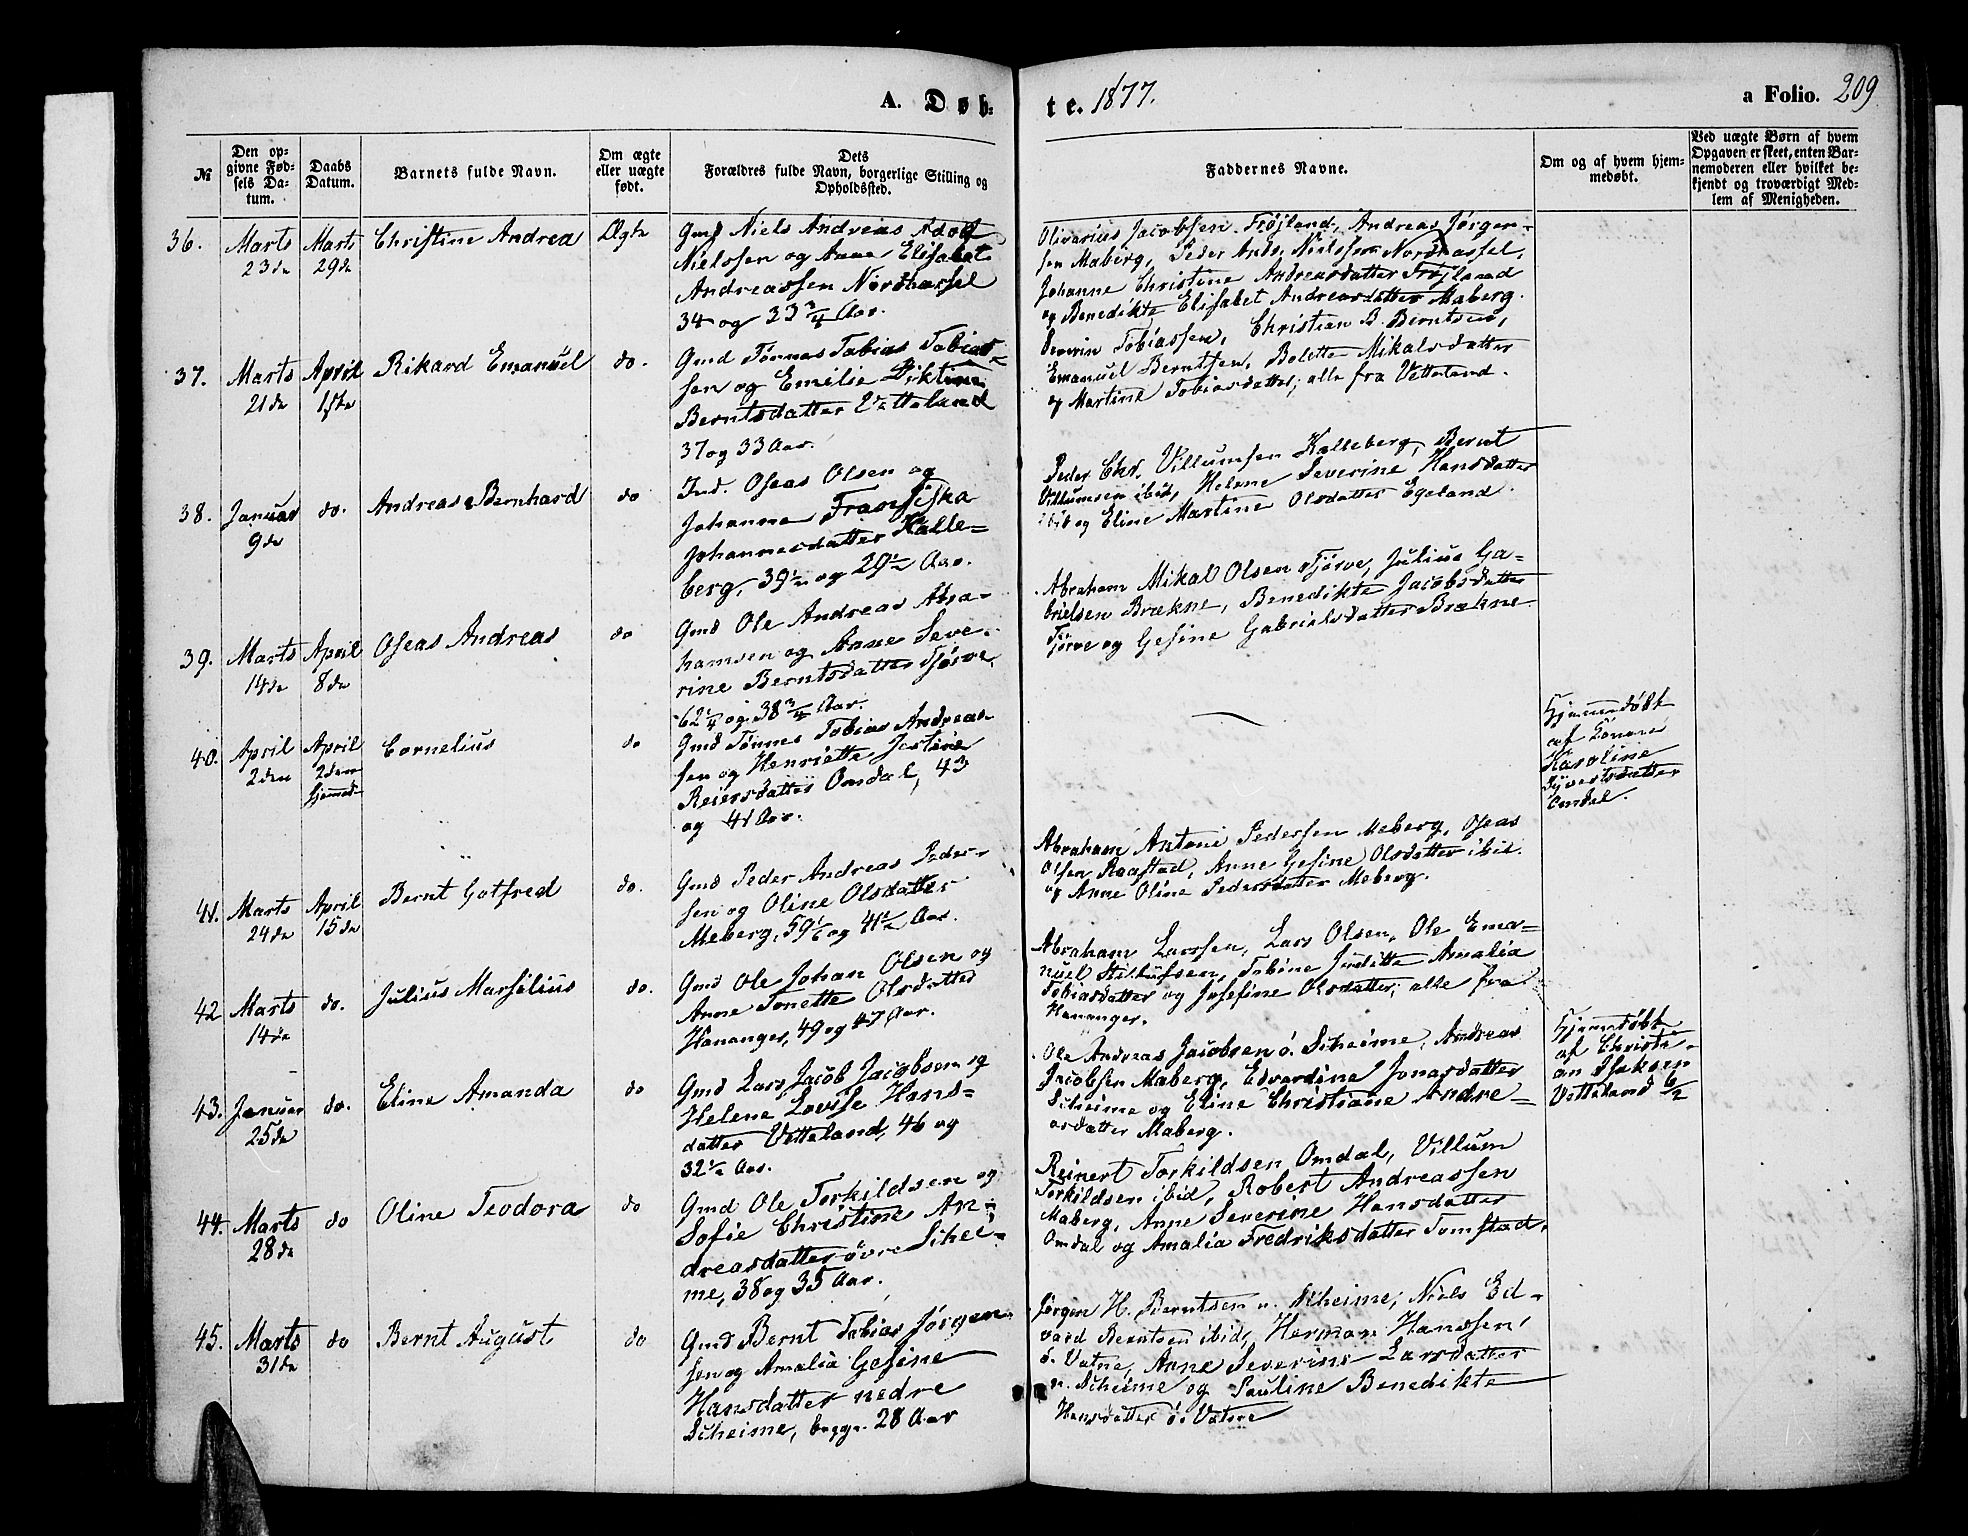 A. Døb-
te. 1877.
a Folio. 209
№
Den op-
givne Fød-
sels Da-
tum.
Daabs
Datum.
Barnets fulde Navn.
Om ægte
eller uægte
født.
Dets
Forældres fulde Navn, borgerlige Stilling og
Opholdssted.
Faddernes Navne.
Om og af hvem hjem-
medøbt.
Ved uægte Børn af hvem
Opgaven er skeet, enten Bar-
nemoderen eller hvilket be-
kjendt og troværdigt Med-
lem af Menigheden.
36.
Marts
23de
Marts
29de
Christine Andrea
Ægte
Gmd Niels Andreas Adolf
Nielssen og Anne Elisabet
Andreassen Nordhassel
34 og 33 3/4 Aar.
Olivarius Jacobsen Frøjland, Andreas Jørgen-
sen Maberg, Peder Andr. Nielssen Nordhassel,
Johanne Christine Andreasdatter Frøjland
og Benedikte Elisabet Andreasdatter Maberg.
37.
Marts
21de
April
1ste
Rikard Emanuel
do.
Gmd Tønnes Tobias Tobias-
sen og Emilie Diktine
Berntsdatter Vetteland
37 og 33 Aar.
Severin Tobiassen, Christian B. Berntsen,
Emanuel Berntsen, Bolette Mikalsdatter
og Martine Tobiasdatter, alle fra Vetteland.
38.
Januar
9de
do.
Andreas Bernhard
do
Ind. Oseas Olsen og
Johanne Fransiska
Johannesdatter Kalle-
berg, 39 1/2 og 29 1/2 Aar.
Peder Chr. Villumsen Kalleberg, Bernt
Villumsen ibid, Helene Severine Hansdatter
ibid og Eline Martine Olsdatter Egeland.
39.
Marts
14de
April
8de
Oseas Andreas
do
Gmd Ole Andreas Abra-
hamsen og Anne Seve-
rine Berntsdatter Tjørve,
62 1/4 og 38 3/4 Aar.
Abraham Mikal Olsen Tjørve, Julius Ga-
brielsen Brækne, Benedikte Jacobsdatter
Tjørve og Gesine Gabrielsdatter Brækne
40.
April
2den
April
2den
hjemmed.
Cornelius
do
Gmd Tønnes Tobias Andreas-
sen og Henriette Jestine
Reiersdatter Omdal, 43
og 41 Aar.
Hjemmedøbt
af
Karoline
Syvertsdatter
Omdal.
41.
Marts
24de
April
15de
Bernt Gotfred
do.
Gmd Peder Andreas Peder-
sen og Oline Olsdatter
Meberg, 59 1/6 og 41 1/2 Aar.
Abraham Antoni Pedersen Meberg, Oseas
Olsen Rogstad, Anne Gesine Olsdatter ibid.
og Anne Oline Pedersdatter Meberg.
42
Marts
14de
do.
Julius Marselius
do.
Gmd Ole Johan Olsen og
Anne Tonette Olsdatter
Hananger, 49 og 47 Aar.
Abraham Larssen, Lars Olsen, Ole Ema-
nuel Stillufsen, Tobine Juditte Amalia
Tobiasdatter og Josefine Olsdatter, alle fra
Hananger.
43.
Januar
25de
do.
Eline Amanda
do
Gmd Lars Jacob Jacobsen og
Helene Lovise Hans-
datter Vetteland, 46 og
32 1/2 Aar.
Ole Andreas Jacobsen ö. Scheime, Andreas
Jacobsen Maberg, Edvardine Jonasdatter
Scheime og Eline Christiane Andre-
asdatter Maberg.
Hjemmedøbt
af Christi-
an Isaksen
Vetteland 6/2
44.
Marts
28de
do
Oline Teodora
do
Gmd Ole Torkildsen og
Sofie Christine An-
dreasdatter øvre Schei-
me, 38 og 35 Aar.
Reinert Torkildsen Omdal, Villum
Torkildsen ibid, Robert Andreassen
Maberg, Anne Severine Hansdatter
Omdal og Amalia Fredriksdatter Tomstad.
45.
Marts
31de
do
Bernt August
do
Gmd Bernt Tobias Jørgen-
sen og Amalia Gesine
Hansdatter nedre
Scheime, begge 28 Aar
Jørgen H. Berntsen n. Scheime, Niels Ed-
vard Berntsen ibid, Herman Hanssen
ö. Vatne, Anne Severine Larsdatter
n. Scheime og Pauline Benedikte
Hansdatter ö. Vatne